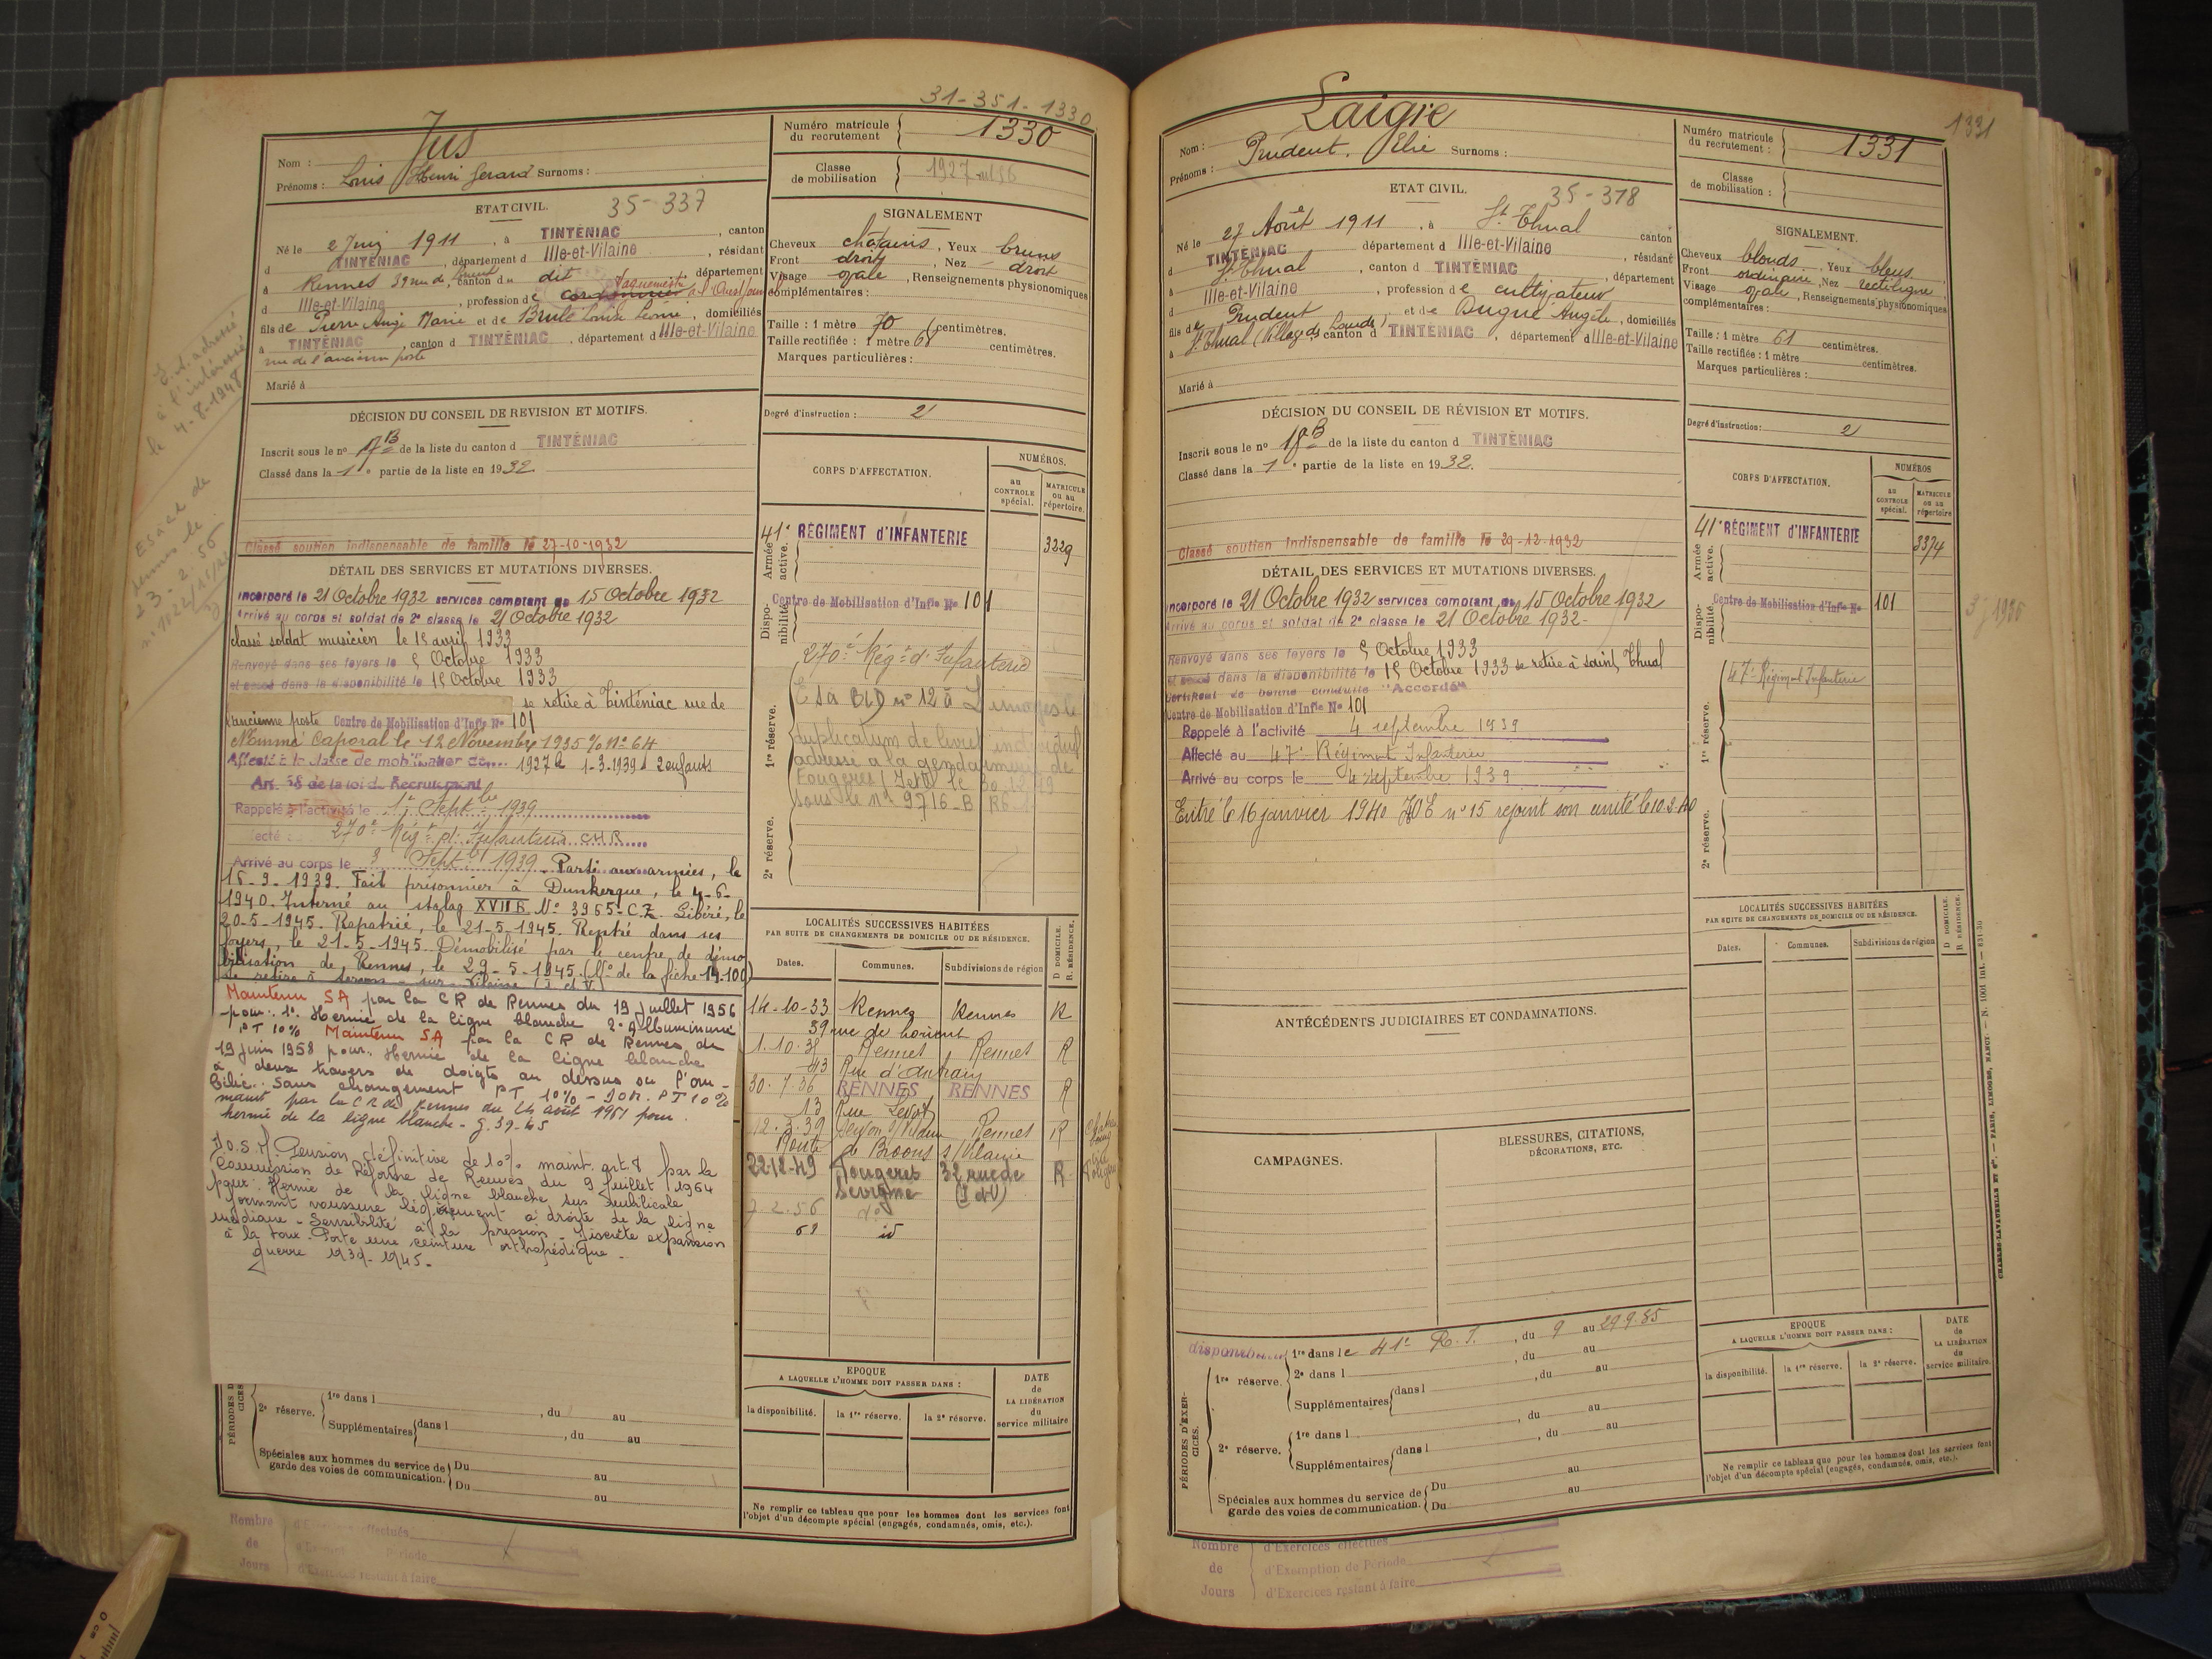 31-351-1330
Nom : Jus
Prénoms : Louis Henri Gerard Surnoms :
Numéro matricule
du recrutement
1330
Classe
de mobilisation
1927
ETAT CIVIL.
35-337
Né le 2 Juin 1911, à TINTÉNIAC, canton
d TINTÉNIAC, département d Ille-et-Vilaine, résidant
à Rennes 39 rue de Lorient canton du dit, département
d Ille-et-Vilaine, profession de cordonnier
fils de Pierre Ange Marie et de Brulé Louise Léonie, domiciliés
à TINTÉNIAC, canton d TINTÉNIAC, département d Ille-et-Vilaine
rue de l'ancienne poste
Marié à
SIGNALEMENT
Cheveux châtains, Yeux bruns
Front droit, Nez droit
Visage ovale, Renseignements physionomiques
complémentaires :
Taille : 1 mètre 70 centimètres.
Taille rectifiée : 1 mètre 68 centimètres.
Marques particulières :
Degré d'instruction : 2
E.A. adressé
à l'intéressé
le 4-8-1948
DÉCISION DU CONSEIL DE REVISION ET MOTIFS.
Inscrit sous le nº 17B de la liste du canton d TINTÉNIAC
Classé dans la 1e partie de la liste en 1932
Classé soutien indispensable de famille le 27-10-1932
DÉTAIL DES SERVICES ET MUTATIONS DIVERSES.
Incorporé le 21 Octobre 1932 services comptant du 15 Octobre 1932
Arrivé au corps et soldat de 2e classe le 21 Octobre 1932
classé soldat musicien le 15 avril 1933
Renvoyé dans ses foyers le 5 Octobre 1933
et passé dans la disponibilité le 15 Octobre 1933
se retire à Tinténiac rue de
l'ancienne poste Centre de Mobilisation d'Inf^ie Nº 101
Nommé Caporal le 12 Novembre 1935 % Nº 64
Affecté à la classe de mobilisation de 1927 le 1-3-1939 2 enfants
Art. 58 de la loi de Recrutement
Rappelé à l'activité le 1er Septbre 1939
270e Régt d'Infanterie CHR
Arrivé au corps le 3 Septbre 1939. Parti aux armées, le
16-9-1939. Fait prisonnier à Dunkerque, le 4-6-
1940. Interné au stalag XVII B Nº 3965-CZ. Libéré, le
20-5-1945. Rapatrié, le 21-5-1945. Rentré dans ses
foyers, le 21-5-1945. Démobilisé par le centre de démo
bilisation de Rennes, le 29-5-1945. (Nº de la fiche 14.100)
se retire à Servon-sur-Vilaine (I. et V.)
Maintenu SA par la CR de Rennes du 19 juillet 1956
pour : 1º Hernie de la ligne blanche 2º Albuminurie
PT 10% Maintenu SA par la CR de Rennes du
19 juin 1958 pour : Hernie de la ligne blanche
à deux travers de doigts au dessus de l'om-
bilic. Sans changement PT 10% - PT 10%
maint par la CR de Rennes du 24 août 1961 pour
hernie de la ligne blanche - G. 39-45
Pension définitive de 10% maint. art. 8 par la
Commission de Réforme de Rennes du 9 juillet 1964
pour : Hernie de la ligne blanche sus ombilicale
formant voussure légèrement à droite de la ligne
médiane - Sensibilité à la pression - Discrète expansion
à la toux. Porte une ceinture orthopédique -
guerre 1939-1945.
CORPS D'AFFECTATION.
NUMÉROS.
au
CONTROLE
spécial.
MATRICULE
ou au
répertoire.
Armée active.
41e RÉGIMENT d'INFANTERIE
3229
Disponibilité
Centre de Mobilisation d'Inf^ie Nº 101
270e Régt d'Infanterie
1re réserve.
duplicatum de livret individuel
adressé à la gendarmerie de
Fougères (I et V) le 30.12.49
sous le nº 9716-B
2e réserve.
LOCALITÉS SUCCESSIVES HABITÉES
PAR SUITE DE CHANGEMENTS DE DOMICILE OU DE RÉSIDENCE.
D DOMICILE.
R. RÉSIDENCE.
Dates.
Communes.
Subdivisions de région
14-10-33 Rennes Rennes R
39 rue de Lorient
1.10.35 Rennes Rennes R
43 Rue d'Antrain
30.7.36 RENNES RENNES R
13 Rue
12.3.39 Servon s/Vilaine Rennes R
Route de Broons s/Vilaine
22-12-49 Fougères 32 rue de R
Sévigné (I et V)
7.2.56 do
id
EPOQUE
A LAQUELLE L'HOMME DOIT PASSER DANS :
la disponibilité.
la 1re réserve.
la 2e réserve.
DATE
de
LA LIBÉRATION
du
service militaire
Ne remplir ce tableau que pour les hommes dont les services font
l'objet d'un décompte spécial (engagés, condamnés, omis, etc.).
PÉRIODES D
CICES
2e réserve. 1re dans l , du au
Supplémentaires dans l , du au
Spéciales aux hommes du service de Du au
garde des voies de communication. Du au
Nombre
de
Jours
d'Exercices effectués
Période
d'Exercices restant à faire
1331
Nom : Laigre
Prénoms : Prudent, Elie Surnoms :
Numéro matricule
du recrutement :
1331
Classe
de mobilisation :
ETAT CIVIL.
35-378
Né le 27 Août 1911, à St Thual canton
d TINTÉNIAC département d Ille-et-Vilaine, résidant
à St Thual, canton d TINTÉNIAC, département
d Ille-et-Vilaine, profession de cultivateur
fils de Prudent et de Dugué Angèle, domiciliés
à St Thual (Village canton d TINTÉNIAC, département d Ille-et-Vilaine
Marié à
SIGNALEMENT.
Cheveux blonds, Yeux bleus
Front ordinaire, Nez rectiligne
Visage ovale, Renseignements physionomiques
complémentaires :
Taille : 1 mètre 61 centimètres.
Taille rectifiée : 1 mètre centimètres.
Marques particulières :
Degré d'instruction : 2
DÉCISION DU CONSEIL DE RÉVISION ET MOTIFS.
Inscrit sous le nº 18B de la liste du canton d TINTÉNIAC
Classé dans la 1e partie de la liste en 1932.
Classé soutien indispensable de famille le 29-12-1932
DÉTAIL DES SERVICES ET MUTATIONS DIVERSES.
Incorporé le 21 Octobre 1932 services comptant du 15 Octobre 1932
Arrivé au corps et soldat de 2e classe le 21 Octobre 1932-
Renvoyé dans ses foyers le 5 Octobre 1933
et passé dans la disponibilité le 15 Octobre 1933 se retire à Saint Thual
Certificat de bonne conduite "Accordé"
Centre de Mobilisation d'Inf^ie Nº 101
Rappelé à l'activité 4 septembre 1939
Affecté au 47e Régiment Infanterie
Arrivé au corps le 4 septembre 1939
Entré le 16 janvier 1940 HOE nº 15 rejoint son unité le 10.2.40
CORPS D'AFFECTATION.
NUMÉROS
au
CONTROLE
spécial.
MATRICULE
ou au
répertoire
Armée active.
41e RÉGIMENT d'INFANTERIE
3374
Disponibilité.
Centre de Mobilisation d'Inf^ie Nº 101
1re réserve.
47e Régiment Infanterie
2e réserve.
ANTÉCÉDENTS JUDICIAIRES ET CONDAMNATIONS.
CAMPAGNES.
BLESSURES, CITATIONS,
DÉCORATIONS, ETC.
LOCALITÉS SUCCESSIVES HABITÉES
PAR SUITE DE CHANGEMENTS DE DOMICILE OU DE RÉSIDENCE.
D DOMICILE.
R RÉSIDENCE.
Dates.
Communes.
Subdivisions de région
PÉRIODES D'EXERCICES.
1re réserve. 1re dans le 41e R.I., du 9 au 29.9.35
2e dans l , du au
Supplémentaires dans l , du au
2e réserve. 1re dans l , du au
Supplémentaires dans l , du au
Spéciales aux hommes du service de Du au
garde des voies de communication. Du au
EPOQUE
A LAQUELLE L'HOMME DOIT PASSER DANS :
la disponibilité.
la 1re réserve.
la 2e réserve.
DATE
de
LA LIBÉRATION
du
service militaire.
Ne remplir ce tableau que pour les hommes dont les services font
l'objet d'un décompte spécial (engagés, condamnés, omis, etc.).
CHARLES-LAVAUZELLE ET Cie. — PARIS, LIMOGES, NANCY.
Nombre
de
Jours
d'Exercices effectués
d'Exemption de Période
d'Exercices restant à faire